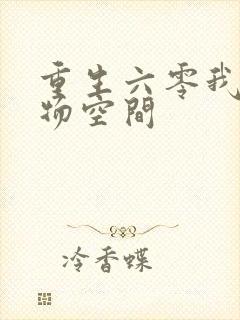 重生六零我
物空間
冷香蝶